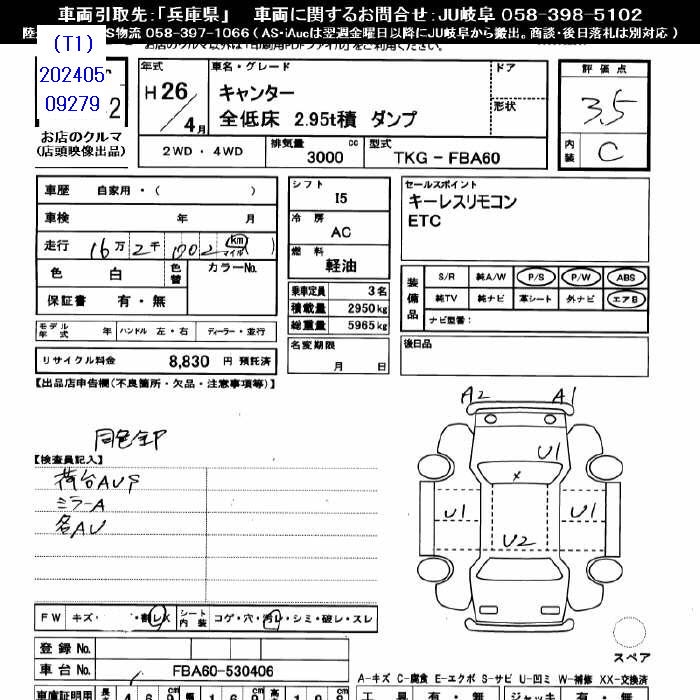 車両引取先：「兵庫県」　車両に関するお問合せ：JU岐阜 058-398-5102
物流 058-397-1066 ( AS・iAucは翌週金曜日以降にJU岐阜から搬出。商談・後日落札は別対応 )
(T1)
202405
09279
2
お店のクルマ
(店頭映像出品)
年式
H26/4月
車名・グレード
キャンター
全低床 2.95t積 ダンプ
ドア
形状
評価点
3.5
内装
C
2WD ・ 4WD
排気量
3000 cc
型式
TKG - FBA60
車歴 自家用・( )
車検 年 月
走行 16万2千002 km マイル
色 白
色替
カラーNo.
保証書 有・無
モデル年式 年 ハンドル 左・右 ディーラー・並行
リサイクル料金 8,830 円 預託済
シフト
I5
冷房
AC
燃料
軽油
乗車定員 3名
積載量 2950kg
総重量 5965kg
名変期限
月 日
セールスポイント
キーレスリモコン
ETC
装備品
S/R 純A/W P/S P/W ABS
純TV 純ナビ 革シート 外ナビ エアB
ナビ型番：
後日品
【出品店申告欄(不良箇所・欠品・注意事項等)】
【検査員記入】
荷台AUサ
ミラーA
各AU
A2
A1
U1
X
U1
U1
U2
スペア
FW キズ・ ・割レX
シート内装 コゲ・穴・汚レ・シミ・破レ・スレ
登録No.
車台No. FBA60-530406
A-キズ C-腐食 E-エクボ S-サビ U-凹ミ W-補修 XX-交換済
車庫証明用
工具 有・無 ジャッキ 有・無